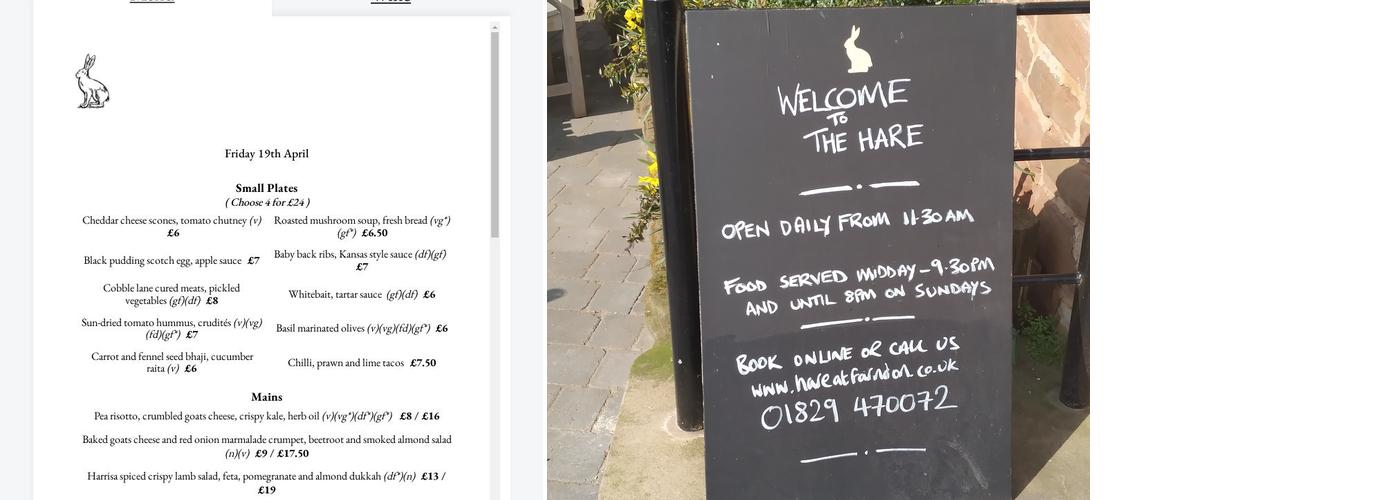 Friday 19th April
Small Plates
( Choose 4 for £24 )
Cheddar cheese scones, tomato chutney (v)
£6
Roasted mushroom soup, fresh bread (vg*)
(gf*) £6.50
Black pudding scotch egg, apple sauce £7
Baby back ribs, Kansas style sauce (df)(gf)
£7
Cobble lane cured meats, pickled
vegetables (gf)(df) £8
Whitebait, tartar sauce (gf)(df) £6
Sun-dried tomato hummus, crudités (v)(vg)
(fd)(gf*) £7
Basil marinated olives (v)(vg)(fd)(gf*) £6
Carrot and fennel seed bhaji, cucumber
raita (v) £6
Chilli, prawn and lime tacos £7.50
Mains
Pea risotto, crumbled goats cheese, crispy kale, herb oil (v)(vg*)(df*)(gf*) £8 / £16
Baked goats cheese and red onion marmalade crumpet, beetroot and smoked almond salad
(n)(v) £9 / £17.50
Harrisa spiced crispy lamb salad, feta, pomegranate and almond dukkah (df*)(n) £13 /
£19
WELCOME
TO
THE HARE
OPEN DAILY FROM 11·30AM
FOOD SERVED MIDDAY - 9·30PM
AND UNTIL 8PM ON SUNDAYS
BOOK ONLINE OR CALL US
www.hareatfarndon.co.uk
01829 470072